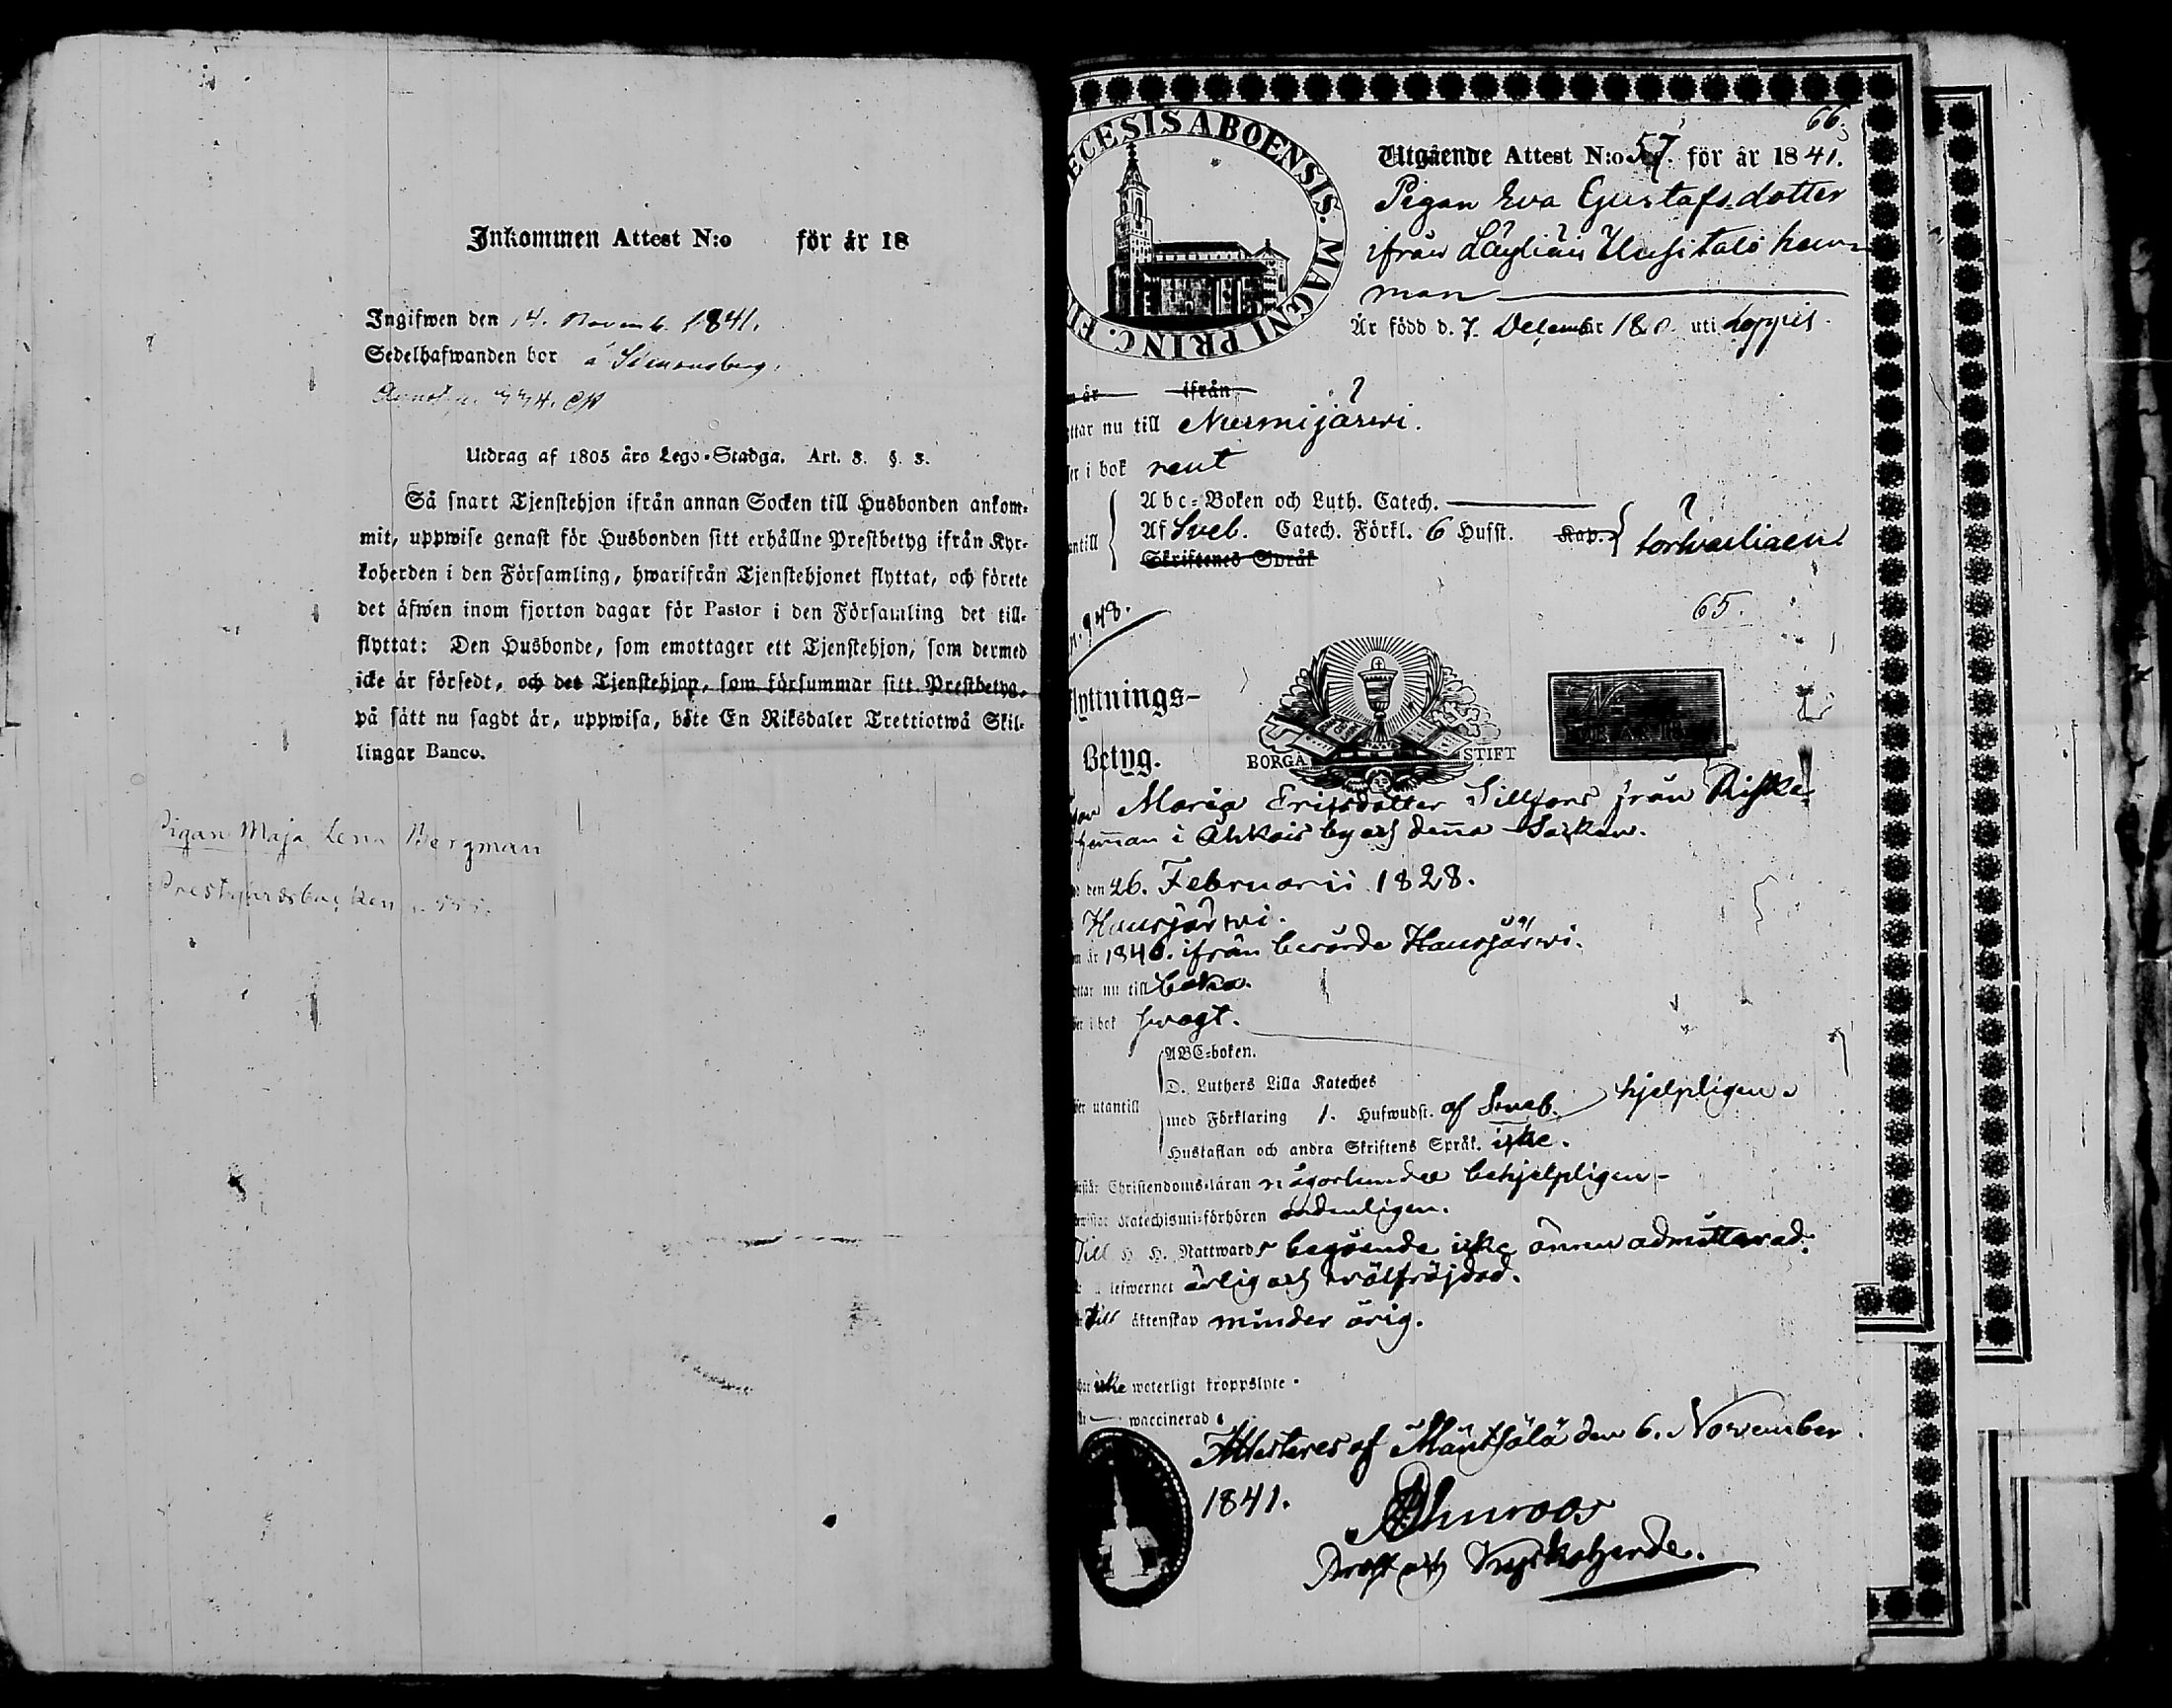 Inkommen Attest N:o för år 18
Ingifwen den 14. Novemb. 1841.
Sedelhafwanden bor å Simonsberg.
Utdrag af 1805 års Lego-Stadga. Art. 3. §. 3.
Så snart Tjenstehjon ifrån annan Socken till Husbonden ankom-
mit, uppwise genast för Husbonden sitt erhållne Prestbetyg ifrån Kyr-
koherden i den Församling, hwarifrån Tjenstehjonet flyttat, och förete
det äfwen inom fjorton dagar för Pastor i den Församling det till-
flyttat: Den Husbonde, som emottager ett Tjenstehjon, som dermed
icke är försedt, och det Tjenstehjon, som försummar sitt Prestbetyg,
på sätt nu sagdt är, uppwisa, böte En Riksdaler Trettiotwå Skil-
lingar Banco.
Pigan Maja Lena Bergman
ECESIS ABOENSIS. MAGNI PRINC. FI
66.
Utgående Attest N:o 57. för år 1841.
Pigan Eva Gustafsdotter
ifrån Uusitalo hem
man
Är född d. 7. December 18 uti Loppis.
är ifrån
ttar nu till Nurmijärwi.
er i bok rent
Abc-Boken och Luth. Catech.
antill Af Sveb. Catech. Förkl. 6 Husst. Kap.
Skriftenes Språk
948.
65.
lyttnings-
Betyg.
BORGA STIFT
Maria Ericsdotter från
hemman i by och denna Socken.
den 26. Februarii 1828.
Hausjärwi.
m år 1840. ifrån berörde Hausjärwi.
ttar nu till
er i bok swagt.
ABC-boken.
D. Luthers Lilla Kateches
er utantill
med Förklaring 1. Hufwudst. af Sveb. hjelpligen
Hustaflan och andra Skriftens Språk. icke.
Christendoms-läran någorlunda behjelpligen
Katechismi-förhören ordenligen.
Till H. H. Nattwards begående icke ännu admitterad.
lefwernet ärlig och wälfräjdad.
Till äktenskap minderårig.
har icke weterligt kroppslyte.
är waccinerad
Attesteres af Mäntsälä den 6. November
1841.
Prost och Kyrkoherde.